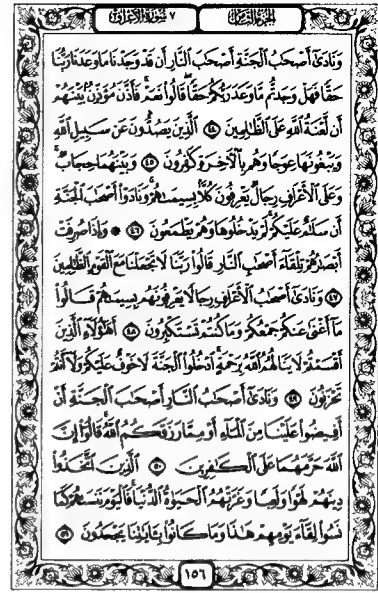 الجزء الثامن
٧ سورة الأعراف
وَنَادَىٰٓ أَصْحَٰبُ ٱلْجَنَّةِ أَصْحَٰبَ ٱلنَّارِ أَن قَدْ وَجَدْنَا مَا وَعَدَنَا رَبُّنَا
حَقًّا فَهَلْ وَجَدتُّم مَّا وَعَدَ رَبُّكُمْ حَقًّا قَالُوا۟ نَعَمْ فَأَذَّنَ مُؤَذِّنٌۢ بَيْنَهُمْ
أَن لَّعْنَةُ ٱللَّهِ عَلَى ٱلظَّٰلِمِينَ ٤٤ ٱلَّذِينَ يَصُدُّونَ عَن سَبِيلِ ٱللَّهِ
وَيَبْغُونَهَا عِوَجًا وَهُم بِٱلْـَٔاخِرَةِ كَٰفِرُونَ ٤٥ وَبَيْنَهُمَا حِجَابٌ
وَعَلَى ٱلْأَعْرَافِ رِجَالٌ يَعْرِفُونَ كُلًّۢا بِسِيمَىٰهُمْ وَنَادَوْا۟ أَصْحَٰبَ ٱلْجَنَّةِ
أَن سَلَٰمٌ عَلَيْكُمْ لَمْ يَدْخُلُوهَا وَهُمْ يَطْمَعُونَ ٤٦ ۞ وَإِذَا صُرِفَتْ
أَبْصَٰرُهُمْ تِلْقَآءَ أَصْحَٰبِ ٱلنَّارِ قَالُوا۟ رَبَّنَا لَا تَجْعَلْنَا مَعَ ٱلْقَوْمِ ٱلظَّٰلِمِينَ
٤٧ وَنَادَىٰٓ أَصْحَٰبُ ٱلْأَعْرَافِ رِجَالًا يَعْرِفُونَهُم بِسِيمَىٰهُمْ قَالُوا۟
مَآ أَغْنَىٰ عَنكُمْ جَمْعُكُمْ وَمَا كُنتُمْ تَسْتَكْبِرُونَ ٤٨ أَهَٰٓؤُلَآءِ ٱلَّذِينَ
أَقْسَمْتُمْ لَا يَنَالُهُمُ ٱللَّهُ بِرَحْمَةٍ ٱدْخُلُوا۟ ٱلْجَنَّةَ لَا خَوْفٌ عَلَيْكُمْ وَلَآ أَنتُمْ
تَحْزَنُونَ ٤٩ وَنَادَىٰٓ أَصْحَٰبُ ٱلنَّارِ أَصْحَٰبَ ٱلْجَنَّةِ أَنْ
أَفِيضُوا۟ عَلَيْنَا مِنَ ٱلْمَآءِ أَوْ مِمَّا رَزَقَكُمُ ٱللَّهُ قَالُوٓا۟ إِنَّ
ٱللَّهَ حَرَّمَهُمَا عَلَى ٱلْكَٰفِرِينَ ٥٠ ٱلَّذِينَ ٱتَّخَذُوا۟
دِينَهُمْ لَهْوًا وَلَعِبًا وَغَرَّتْهُمُ ٱلْحَيَوٰةُ ٱلدُّنْيَا فَٱلْيَوْمَ نَنسَىٰهُمْ كَمَا
نَسُوا۟ لِقَآءَ يَوْمِهِمْ هَٰذَا وَمَا كَانُوا۟ بِـَٔايَٰتِنَا يَجْحَدُونَ ٥١
١٥٦